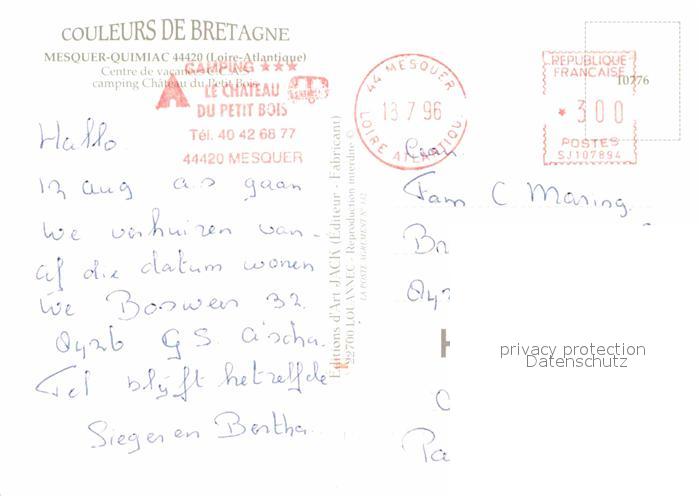 COULEURS DE BRETAGNE
MESQUER-QUIMIAC 44420 (Loire-Atlantique)
Centre de vacances C.C.A.S.
camping Château du Petit Bois
CAMPING ★★★
LE CHÂTEAU
DU PETIT BOIS
Tél. 40 42 68 77
44420 MESQUER
44 MESQUER
13 7 96
LOIRE ATLANTIQUE
REPUBLIQUE
FRANÇAISE
300
POSTES
SJ107894
T0276
Hallo
12 aug a.s gaan
We verhuizen van-
af die datum wonen
We Bosweg 32.
9426 GS.
Tel blijft hetzelfde
Sieger en Bertha.
Editions d'Art JACK (Éditeur - Fabricant)
22700 LOUANNEC - Reproduction interdite ©
Fam C Maring.
Br
Pa
privacy protection
Datenschutz